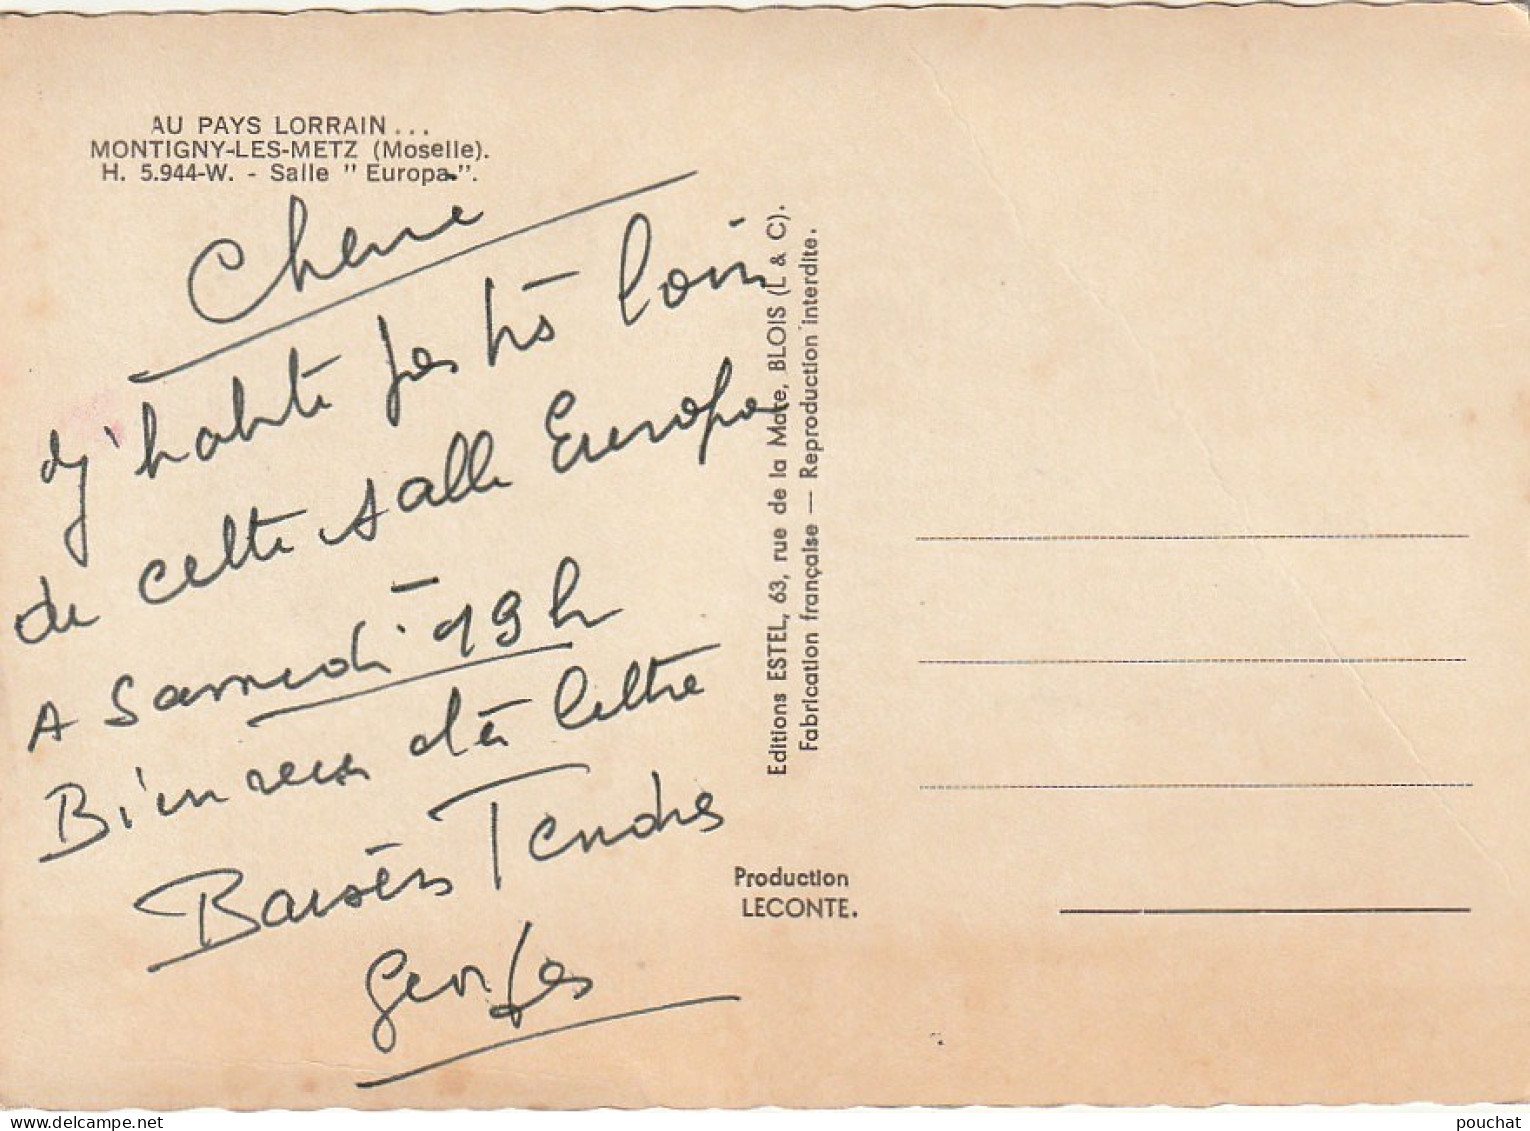 AU PAYS LORRAIN...
MONTIGNY-LES-METZ (Moselle).
H. 5.944-W. - Salle " Europa ".
Cherie
J'habite pas très loin
de cette salle Europa
A Samedi - 19 h
Bien reçu ta lettre
Baisers Tendres
Georges
Editions ESTEL, 63, rue de la Mare, BLOIS (L & C).
Fabrication française — Reproduction interdite.
Production
LECONTE.
pouchat